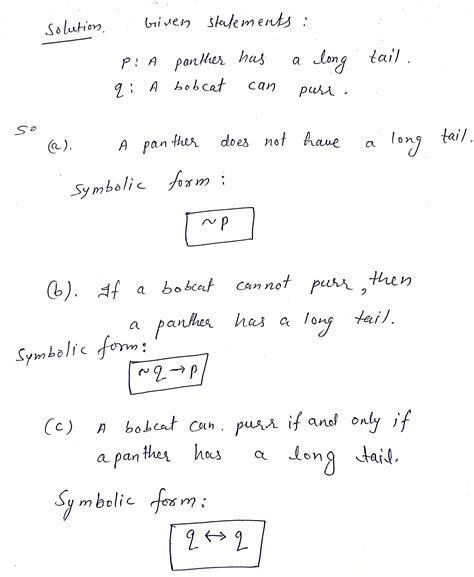 Solution. Given statements :
p: A panther has a long tail.
q: A bobcat can purr.
So
(a). A panther does not have a long tail.
Symbolic form :
~p
(b). If a bobcat cannot purr, then
a panther has a long tail.
Symbolic form:
~q → p
(c) A bobcat can. purr if and only if
a panther has a long tail.
Symbolic form:
q ↔ q